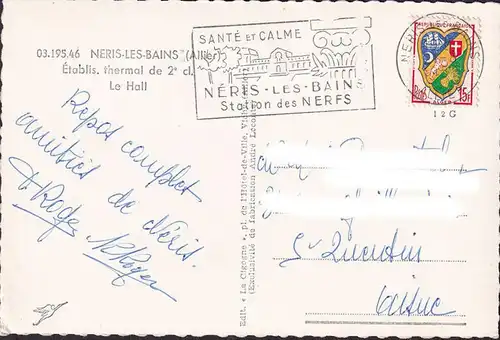 03.195.46 NERIS-LES-BAINS (Allier)
Établis. thermal de 2e cl.
Le Hall
SANTÉ ET CALME
NÉRIS·LES·BAINS
Station des NERFS
REPUBLIQUE FRANÇAISE
ALGER
15F
12 G
Edit. « La Cigogne », pl. de l'Hôtel-de-Ville, Vichy
(Exclusivité de fabrication André Leconte)
Repos complet
amitiés de Néris.
Roger
St Quentin
Aisne